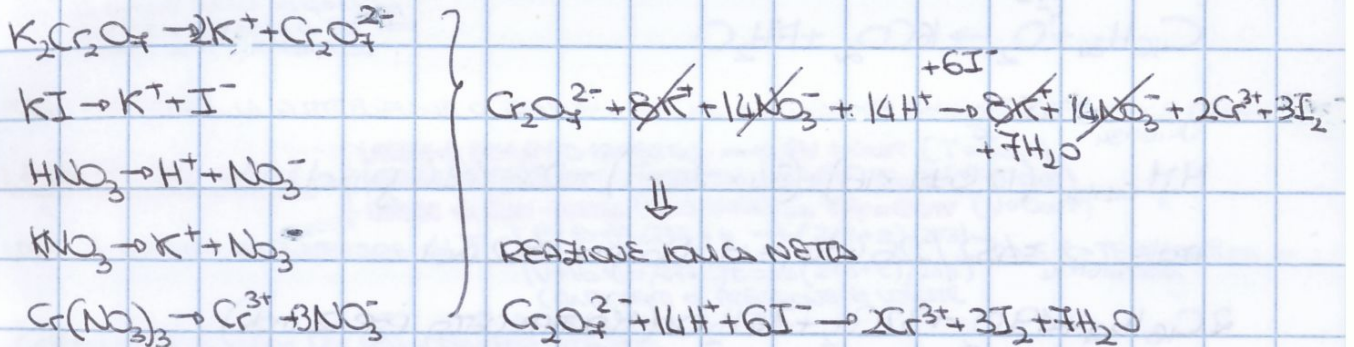 K₂Cr₂O₇ → 2K⁺ + Cr₂O₇²⁻
KI → K⁺ + I⁻
HNO₃ → H⁺ + NO₃⁻
KNO₃ → K⁺ + NO₃⁻
Cr(NO₃)₃ → Cr³⁺ + 3NO₃⁻
+6I⁻
Cr₂O₇²⁻ + 8K⁺ + 14NO₃⁻ + 14H⁺ → 8K⁺ + 14NO₃⁻ + 2Cr³⁺ + 3I₂
+ 7H₂O
⇓
REAZIONE IONICA NETTA
Cr₂O₇²⁻ + 14H⁺ + 6I⁻ → 2Cr³⁺ + 3I₂ + 7H₂O